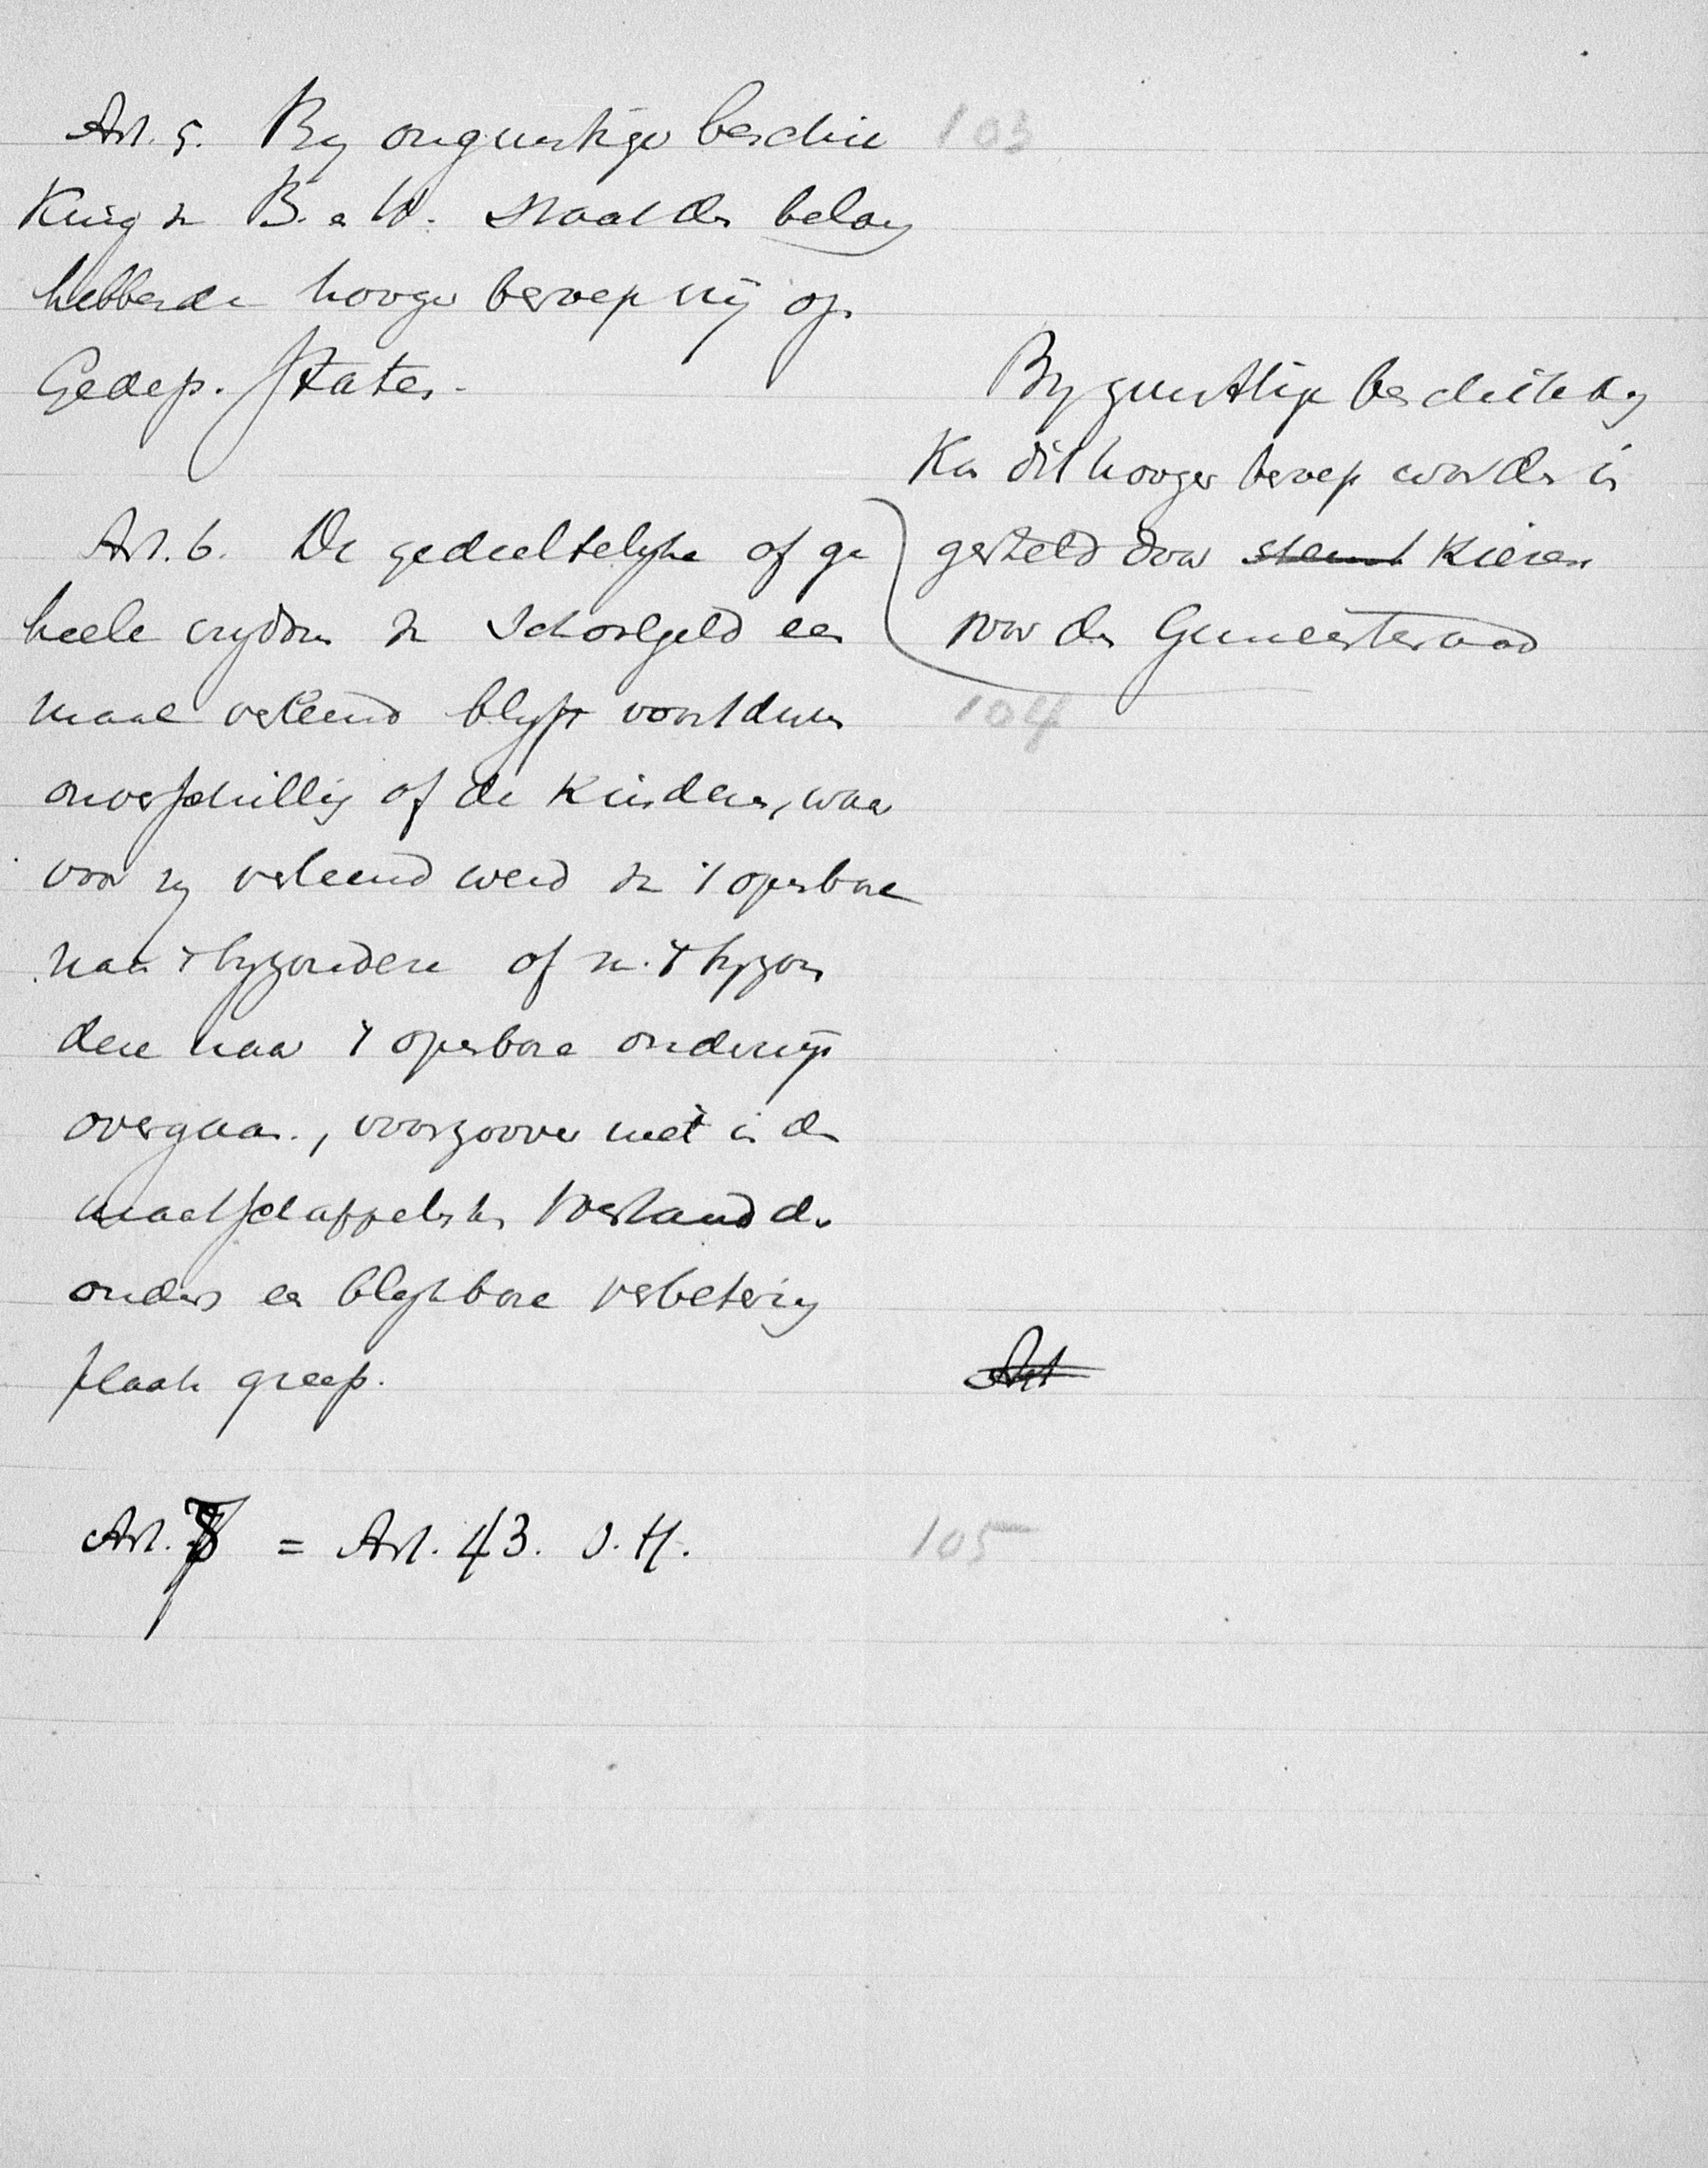 Art. 5. By ongunstige beschik
king v. B. a W. staat den belang
hebbende hooger beroep vrij op
Gedep. Staten.
103
By gunstige beschikking
kan dit hooger beroep worden in
gesteld door stemt kiezers
voor den Gemeenteraad
Art. 6. De gedeeltelyke of ge
heele vrydom v. Schoolgeld een
maal verleend blyft voortduren
onverschillig of de kinderen, waar
voor zy verleend werd v. 't openbare
naar 't byzondere of v. 't byzon
dere naar 't openbare onderwijs
overgaan, voorzoover niet in den
maatschappelyken toestand der
ouders een blykbare verbetering
plaats greep.
104
Art
Art. 7 = Art. 43. O. H.
105